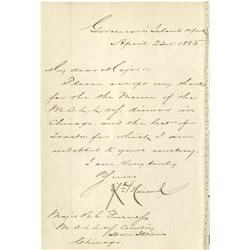 Governor's Island N.York
April 23rd 1885
My dear Major:
Please accept my thanks
for the Menu of the
M.O.L.L.U.S. dinner in
Chicago, and the list of
Toasts, for which I am
indebted to your courtesy.
I am, Very truly
Yours
Hancock
Major
M.O.L.L.U.S.
Chicago.